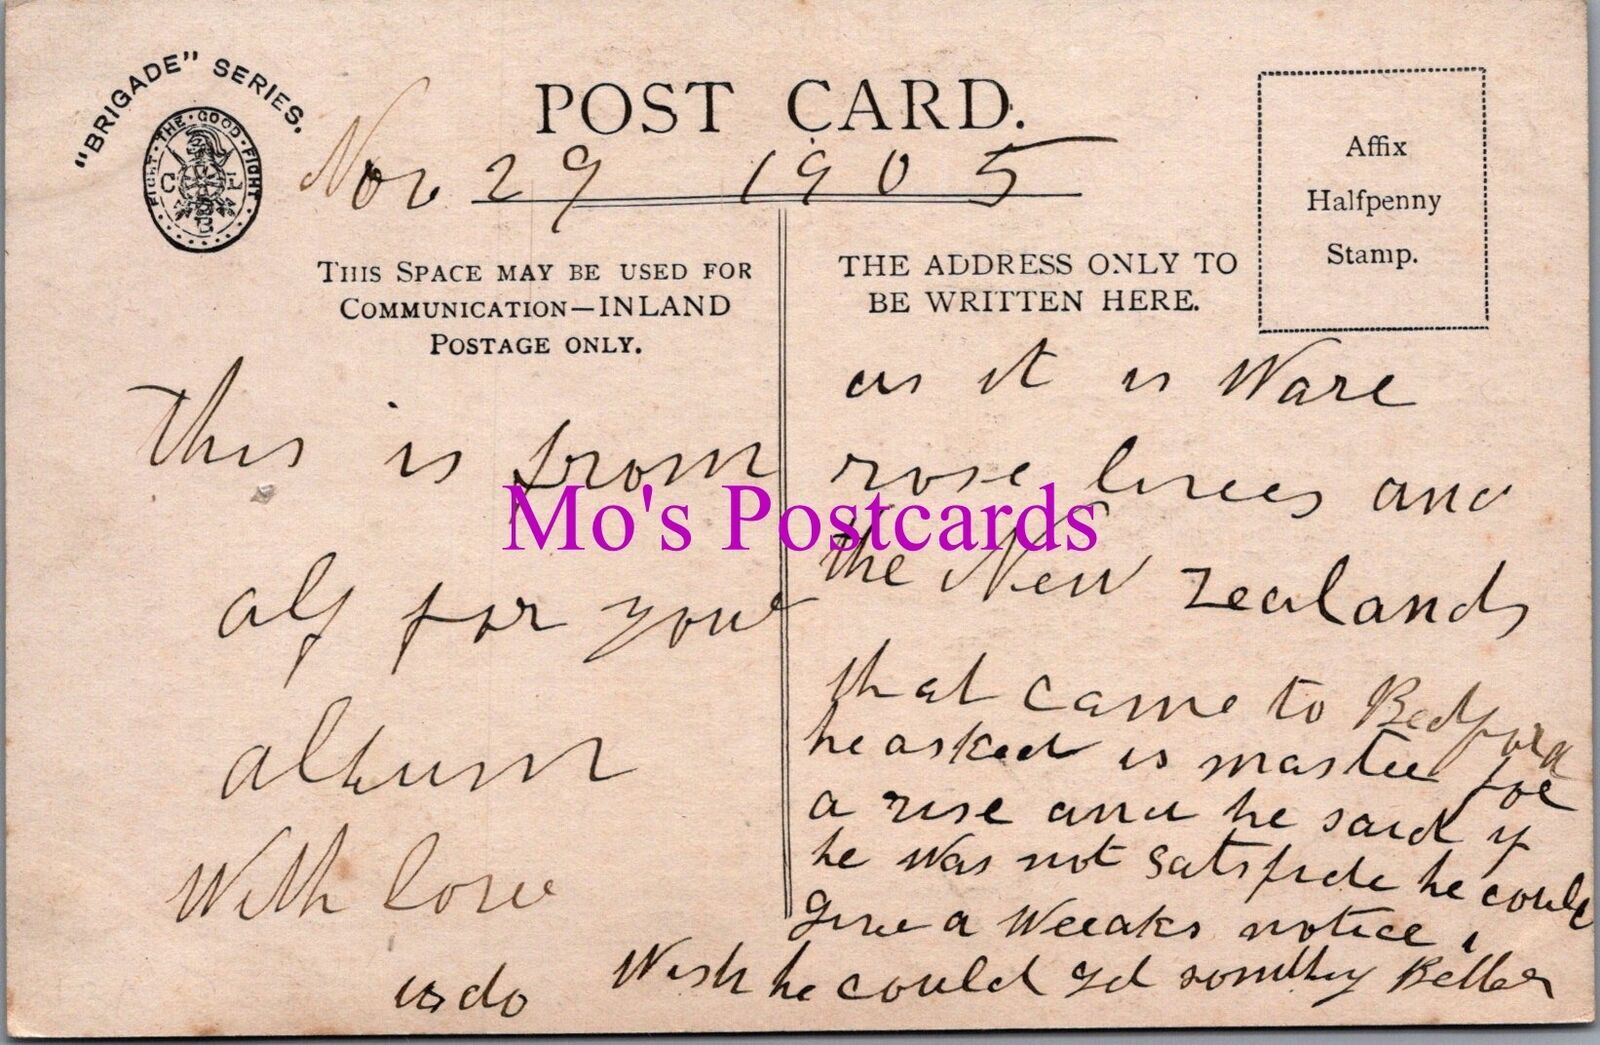 "BRIGADE" SERIES.
FIGHT · THE · GOOD · FIGHT
C L
B
POST CARD.
Nov 29 1905
Affix
Halfpenny
Stamp.
THIS SPACE MAY BE USED FOR
COMMUNICATION—INLAND
POSTAGE ONLY.
this is from
alf for your
album
With love
THE ADDRESS ONLY TO
BE WRITTEN HERE.
as it is Ware
rose lives and
the New Zealands
that came to Bedford
he asked is master for
a rise and he said if
he was not satsfide he could
give a Weeaks notice,
Wish he could gd Better
Mo's Postcards